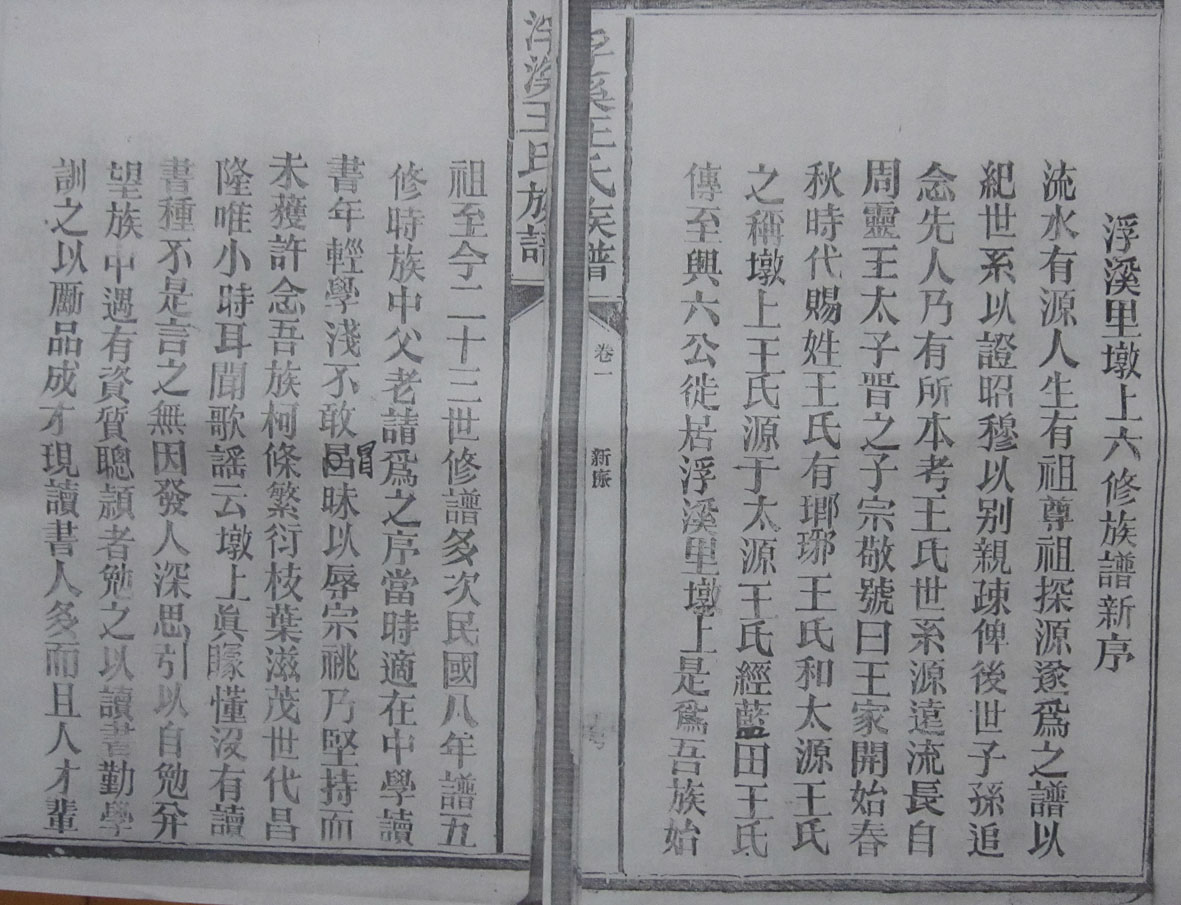 浮溪里墩上六修族譜新序
流水有源人生有祖尊祖探源遂爲之譜以
紀世系以證昭穆以别親疎俾後世子孫追
念先人乃有所本考王氏世系源遠流長自
周靈王太子晋之子宗敬號曰王家開始春
秋時代賜姓王氏有瑯琊王氏和太源王氏
之稱墩上王氏源于太源王氏經藍田王氏
傳至興六公徙居浮溪里墩上是爲吾族始
浮溪王氏族譜
卷一
新序
浮溪王氏族譜
祖至今二十三世修譜多次民國八年譜五
修時族中父老請爲之序當時適在中學讀
書年輕學淺不敢冒昧以辱宗祧乃堅持而
未獲許念吾族柯條繁衍枝葉滋茂世代昌
隆唯小時耳聞歌謡云墩上眞矇懂沒有讀
書種不是言之無因發人深思引以自勉并
望族中遇有資質聰頴者勉之以讀書勤學
訓之以勵品成才現讀書人多而且人才輩